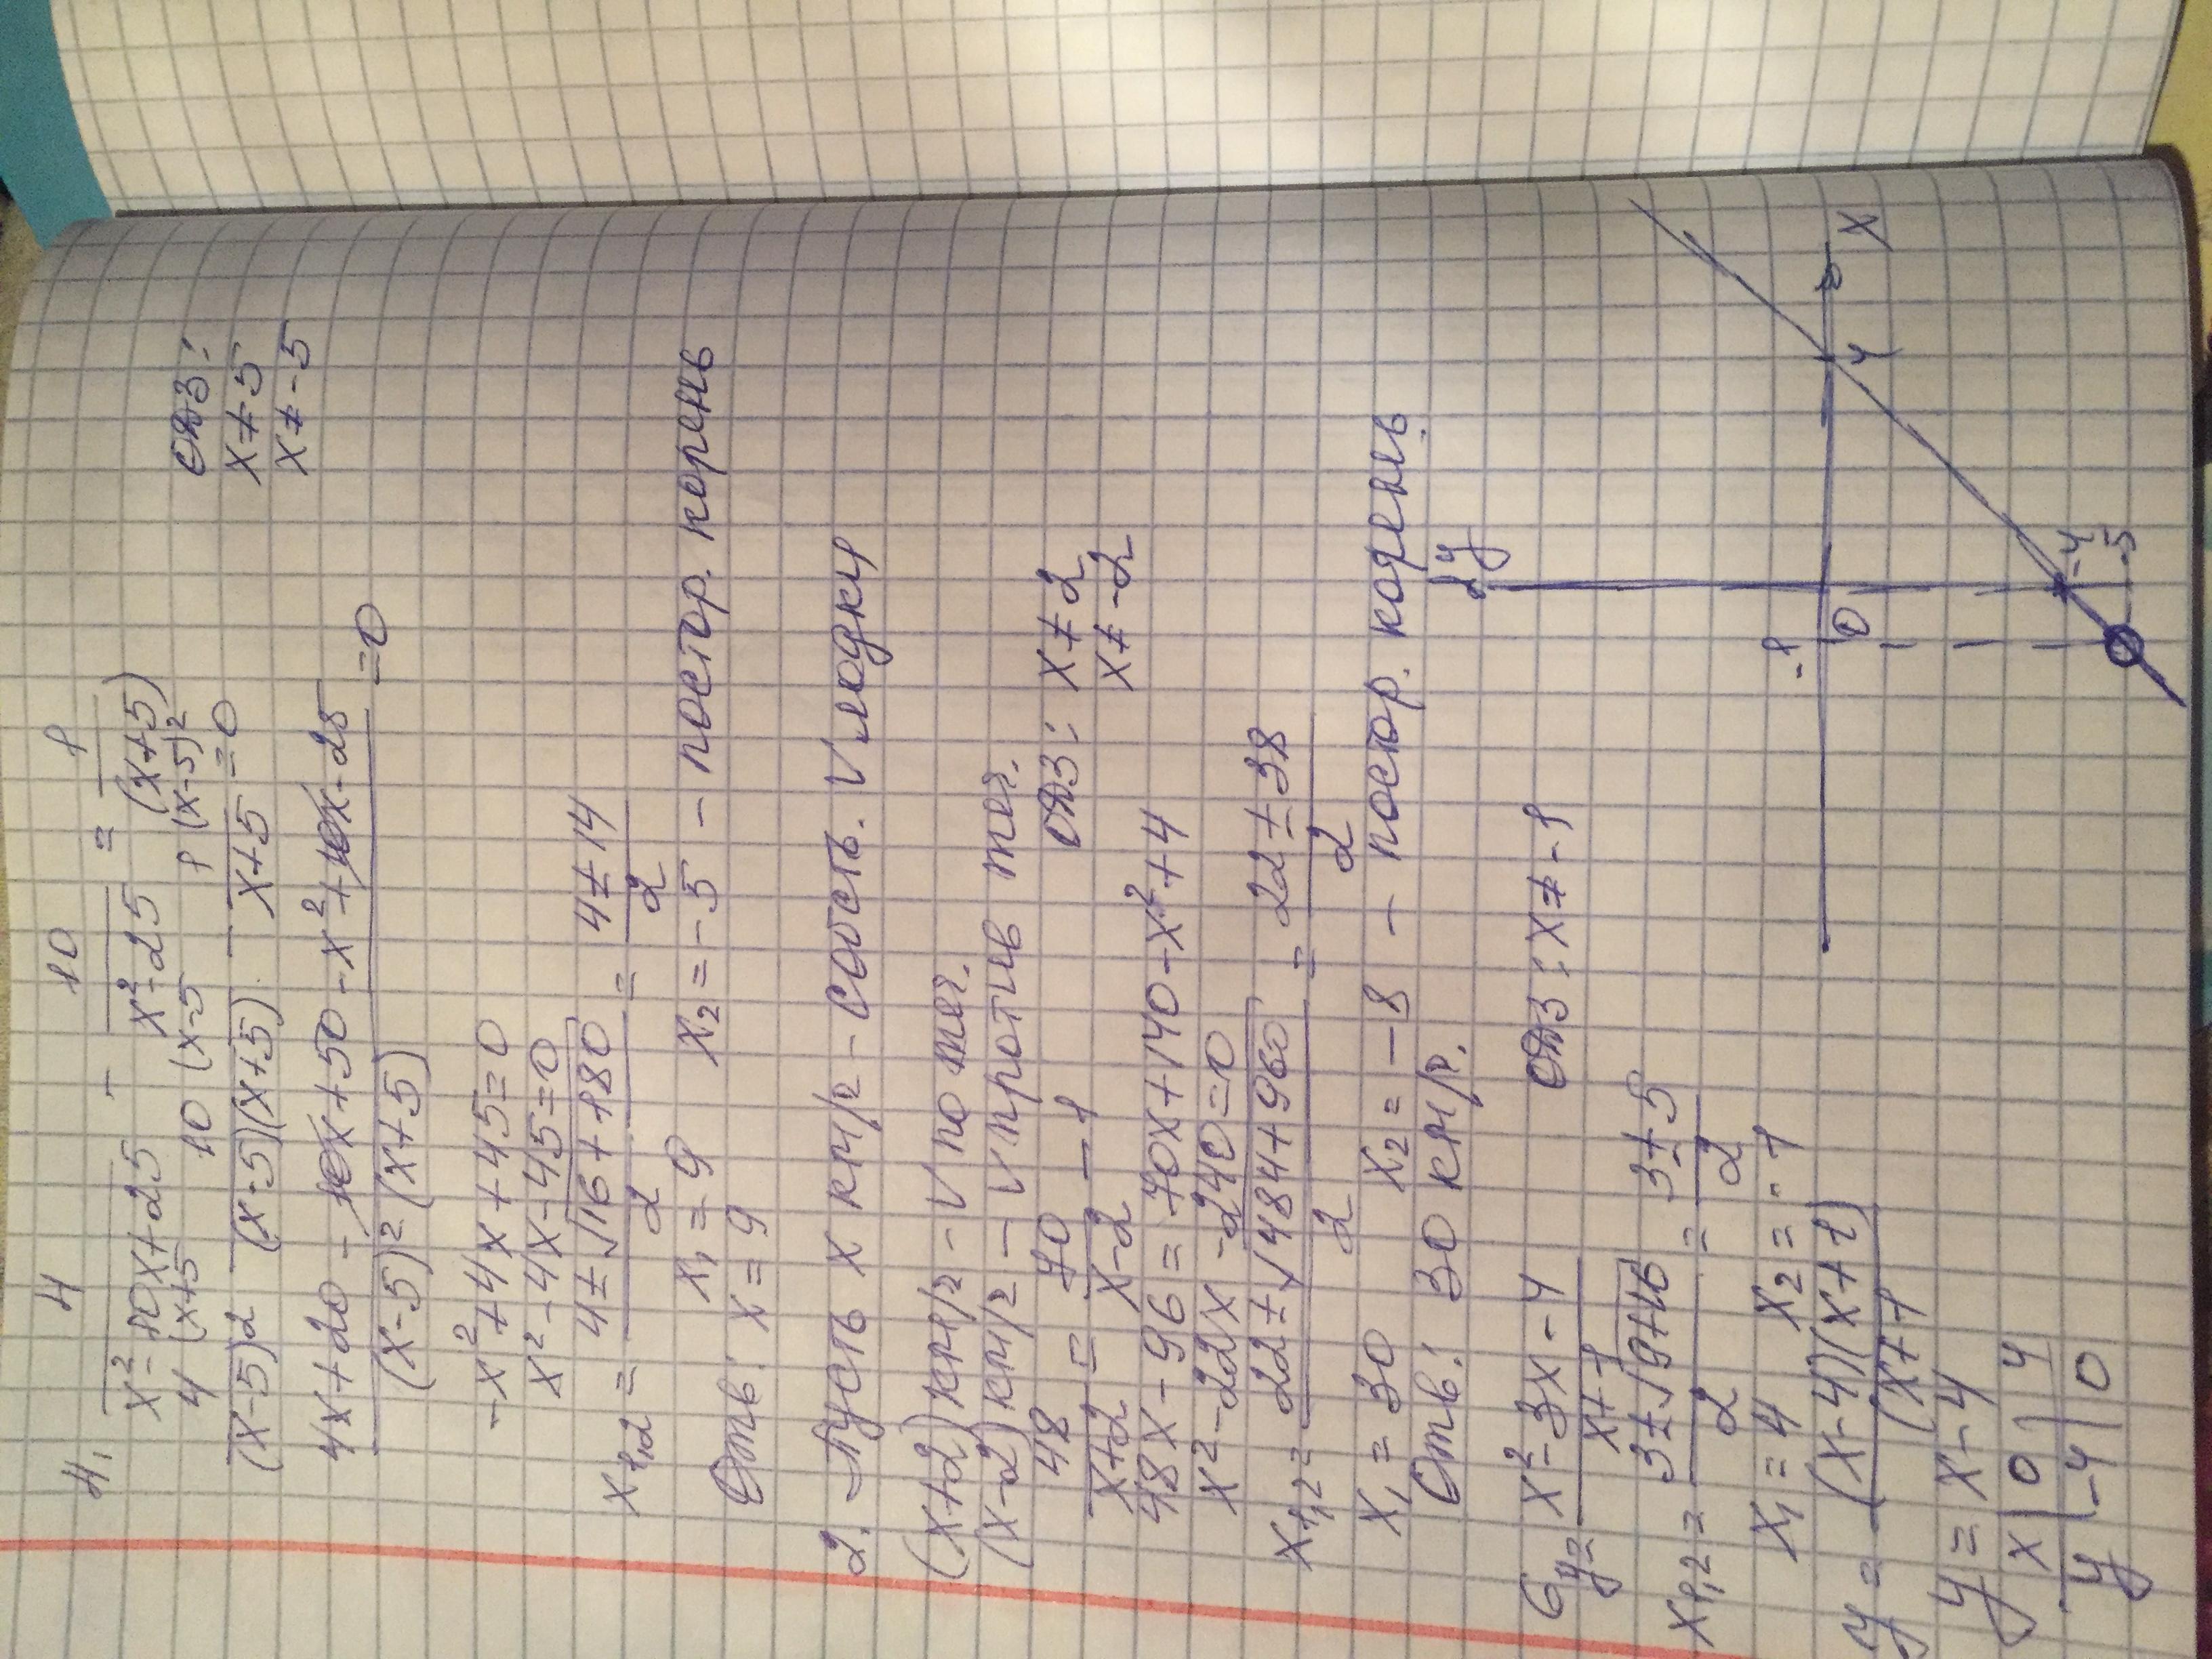 4. 4/(x²-10x+25) - 10/(x²-25) = 1/(x+5)
4(x+5)/(x-5)² - 10(x-5)/((x-5)(x+5)) - 1(x-5)²/(x+5) = 0
ОДЗ:
x≠5
x≠-5
(4x+20-10x+50-x²+10x-25)/((x-5)²(x+5)) = 0
-x²+4x+45=0
x²-4x-45=0
x₁,₂ = (4±√16+180)/2 = (4±14)/2
x₁=9 x₂=-5 - постор. корень
Отв: x=9
2. Пусть x км/г - собств. V лодки
(x+2) км/г - V по теч.
(x-2) км/г - V против теч.
48/(x+2) = 70/(x-2) - 1 ОДЗ: x≠2
x≠-2
48x-96=70x+140-x²+4
x²-22x-240=0
x₁,₂ = (22±√484+960)/2 = (22±38)/2
x₁=30 x₂=-8 - постор. корень
Отв: 30 км/г.
6 y=(x²-3x-4)/(x+1) ОДЗ: x≠-1
x₁,₂ = (3±√9+16)/2 = (3±5)/2
x₁=4 x₂=-1
y=(x-4)(x+1)/(x+1)
y=x-4
x | 0 | 4
y | -4 | 0
y
-1
0
4
x
-4
-5